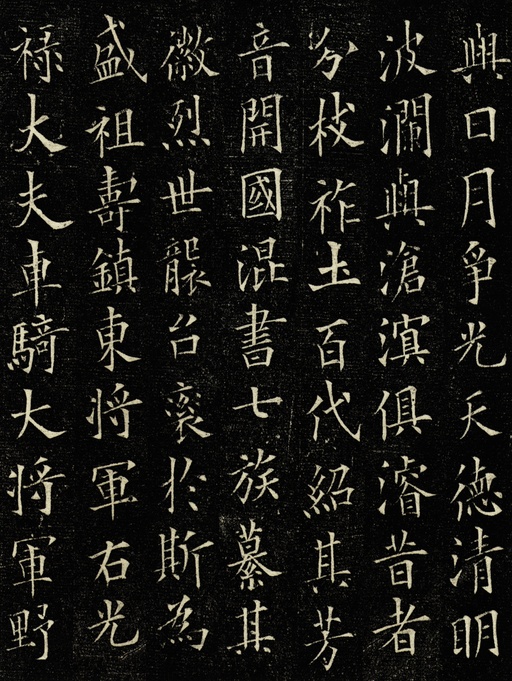 與日月爭光天德清明
波瀾與滄溟俱濬昔者
分枝祚圡百代紹其芳
音開國混書七族纂其
徽烈世襲台袞於斯為
盛祖壽鎮東將軍右光
祿大夫車騎大將軍野